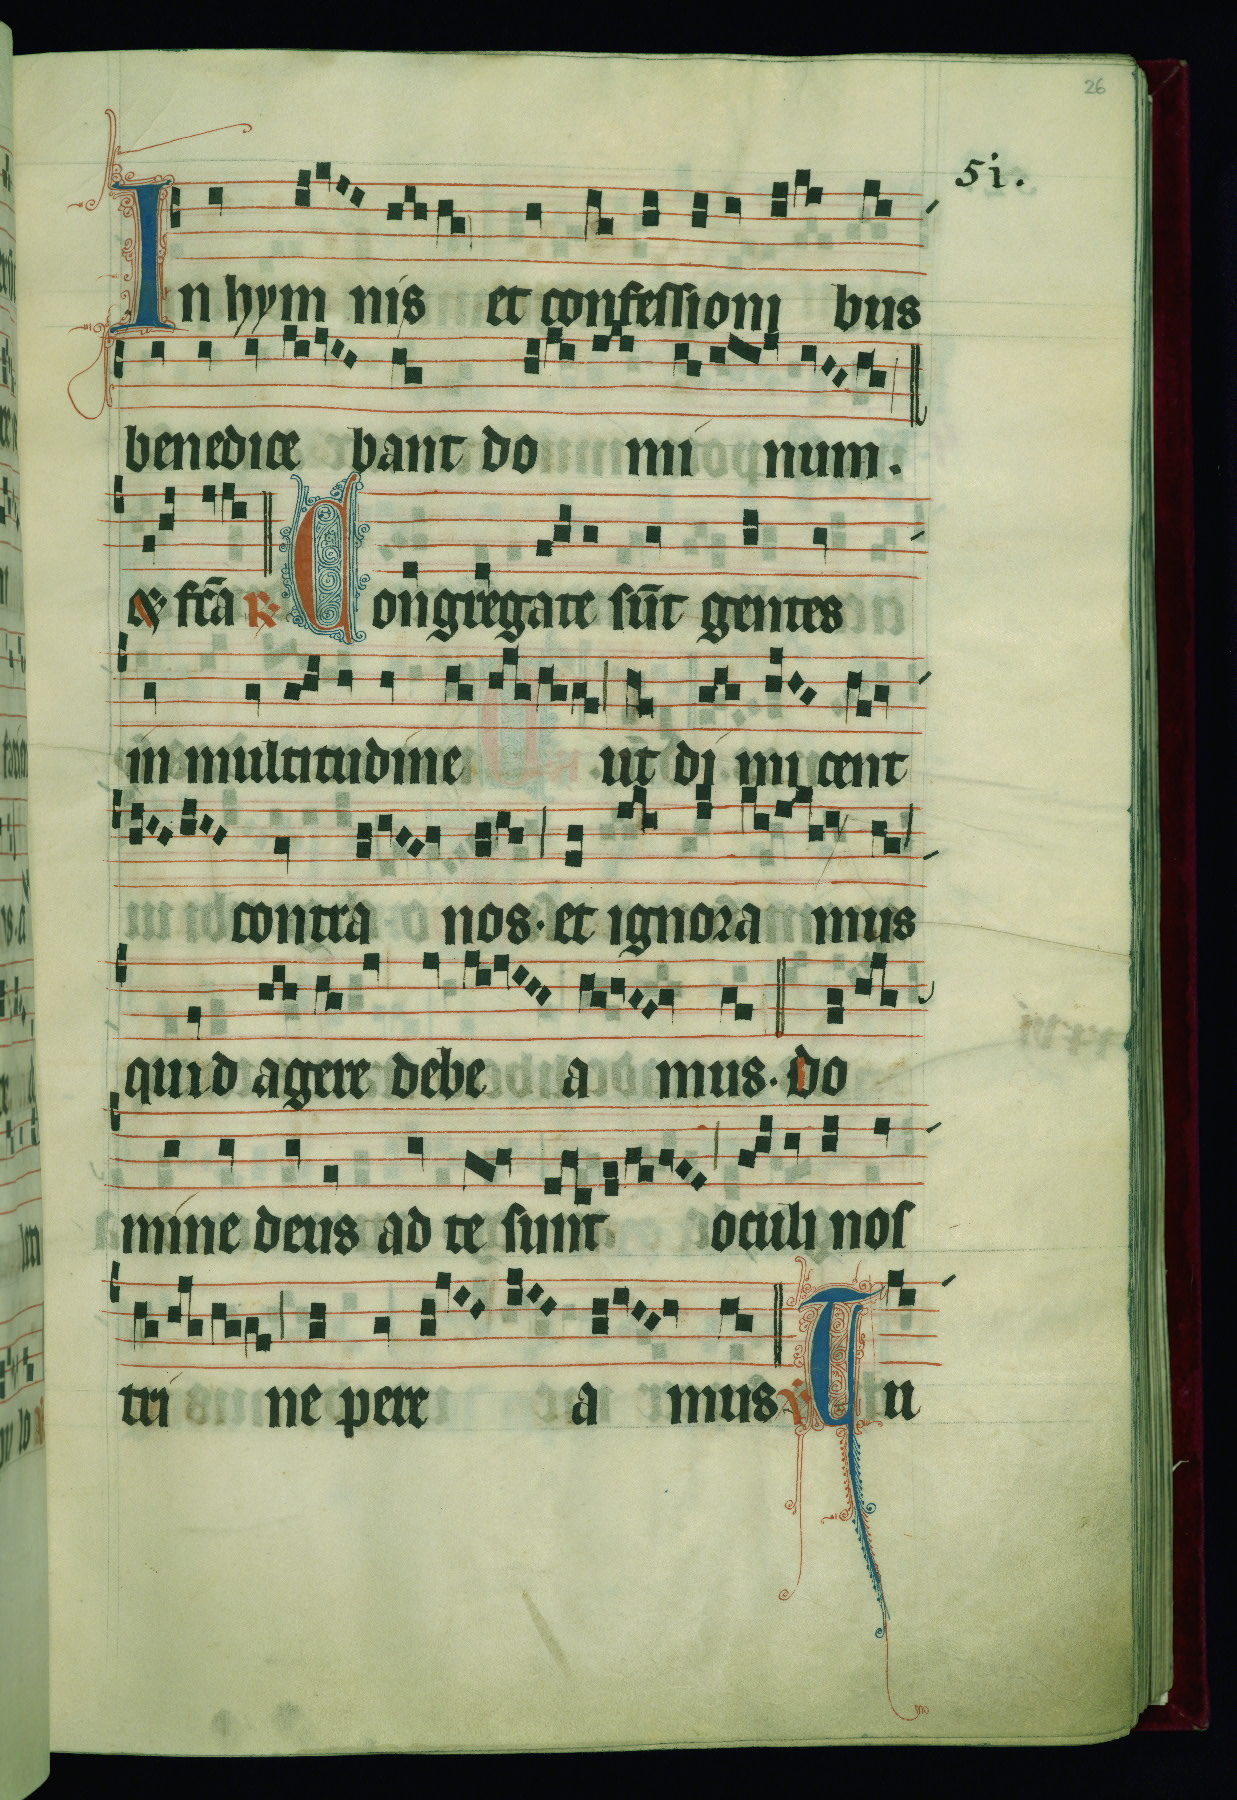 26
51.
In hym nis et confessioni bus
benedice bant do mi num.
Ex fc̄a R. Congregate sūt gentes
in multitudine ut di mi cent
contra nos. et ignora mus
quid agere debe a mus. do
mine deus ad te sunt oculi nos
tri ne pere a mus V. Tu